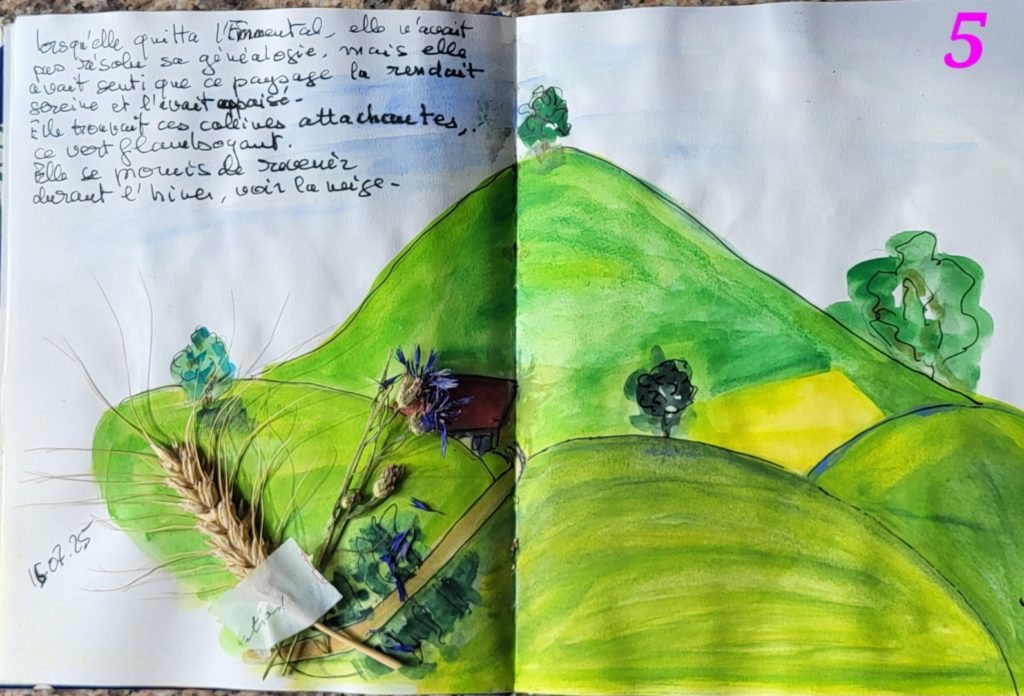 Lorsqu'elle quitta l'Emmental, elle n'avait
pas résolu sa généalogie, mais elle
avait senti que ce paysage la rendait
sereine et l'avait apaisé.
Elle trouvait ces collines attachantes,
ce vert flamboyant.
Elle se promis de revenir
durant l'hiver, voir la neige.
5
15.07.25